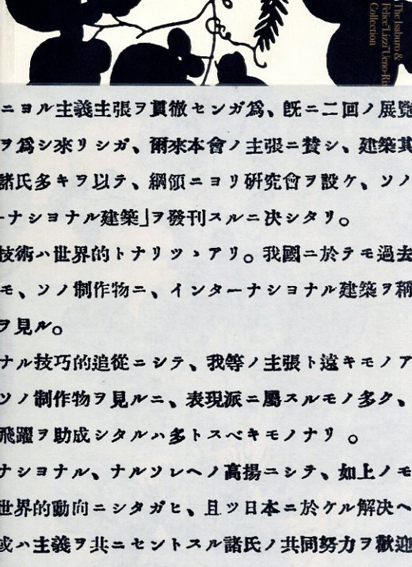 The Isaburo &
Felice "Lizzi" Ueno-Ri
Collection
ニヨル主義主張ヲ貫徹センガ爲、既ニ二回ノ展覽
ヲ爲シ來リシガ、爾來本會ノ主張ニ賛シ、建築其
諸氏多キヲ以テ、綱領ニヨリ研究會ヲ設ケ、ソノ
ーナショナル建築」ヲ發刊スルニ决シタリ。
技術ハ世界的トナリツヽアリ。我國ニ於テモ過去
モ、ソノ制作物ニ、インターナショナル建築ヲ稱
ヲ見ル。
ナル技巧的追從ニシテ、我等ノ主張ト遠キモノア
ソノ制作物ヲ見ルニ、表現派ニ屬スルモノ多ク、
飛躍ヲ助成シタルハ多トスベキモノナリ 。
ナショナル、ナルソレヘノ高揚ニシテ、如上ノモ
世界的動向ニシタガヒ、且ツ日本ニ於ケル解決ヘ
或ハ主義ヲ共ニセントスル諸氏ノ共同努力ヲ歡迎